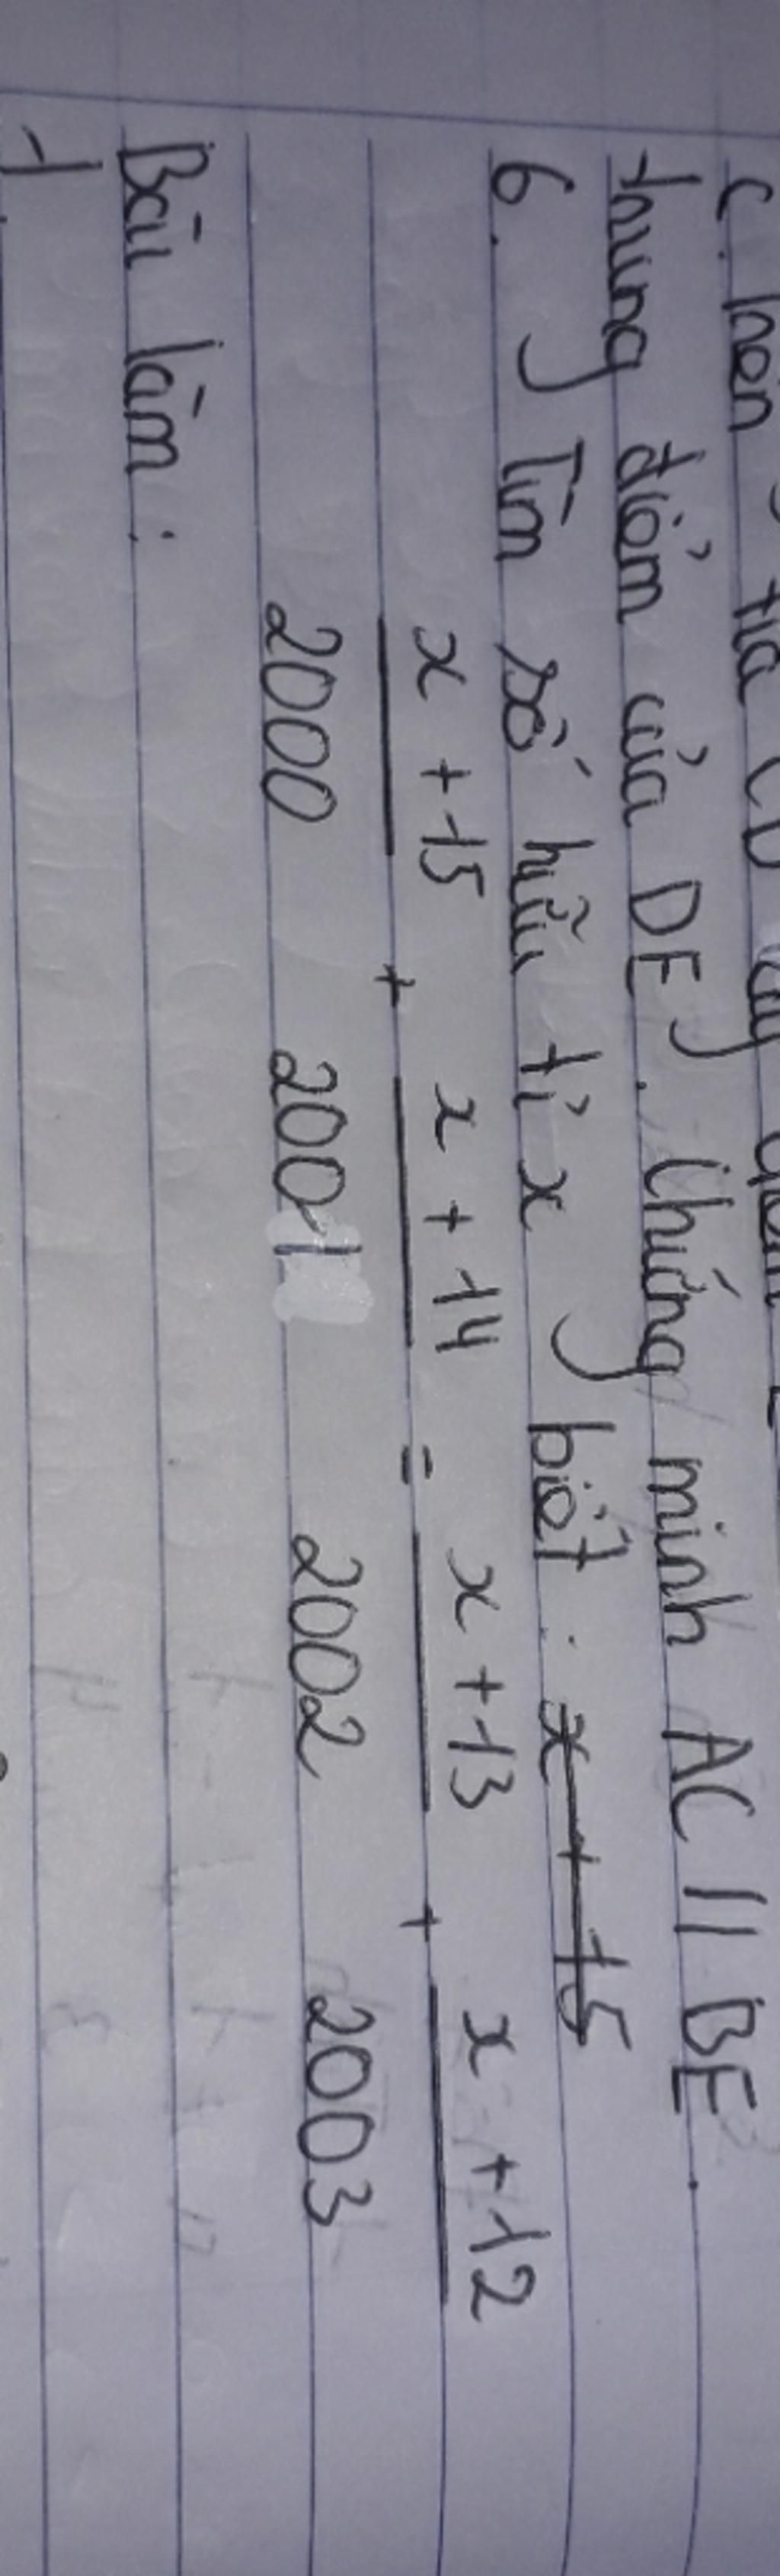 C. Trên tia CD lấy điểm E
trung điểm của DE. Chứng minh AC // BE.
6. Tìm số hữu tỉ x biết: x + 15
x + 15 / 2000 + x + 14 / 2001 = x + 13 / 2002 + x + 12 / 2003
Bài làm:
1